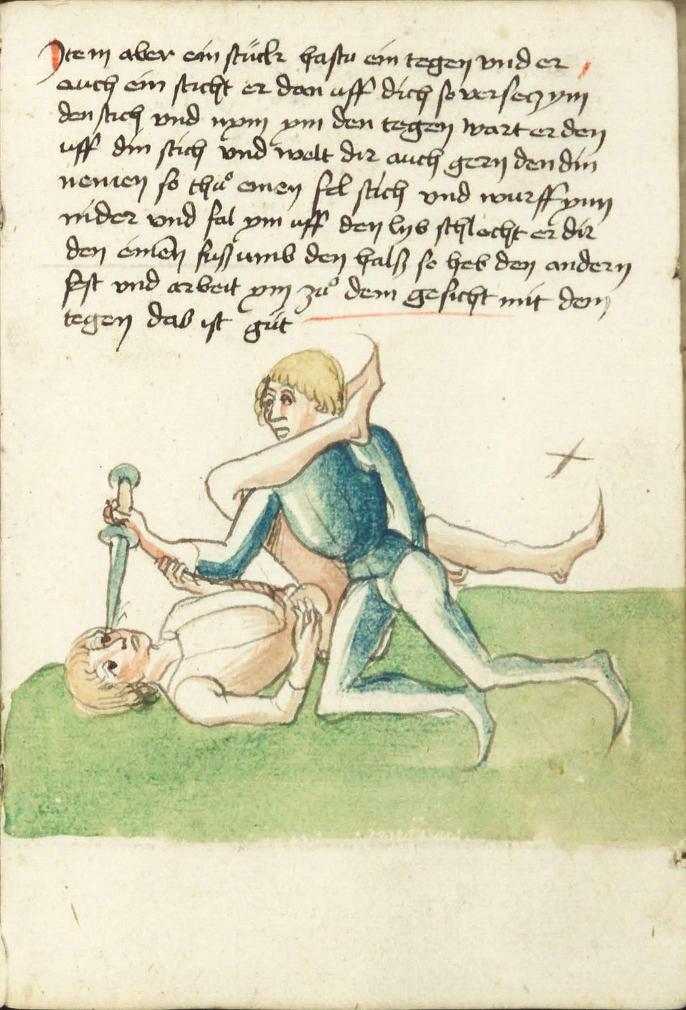 Item aber ein stückr hastu ein tegen vnd er
auch ein sticht er dan uff dich so versecz ym
den stich vnd nym ym den tegen wart er den
uff din stich vnd welt dir auch gern den din
nemen so thuͦ einen fel stich vnd wurff ynn
nider vnd fal ym uff den lyb schlecht er dir
den einen fuß umb den halß so heb den andern
fest vnd arbeit ym zuͦ dem gesicht mit dem
tegen das ist guͦt